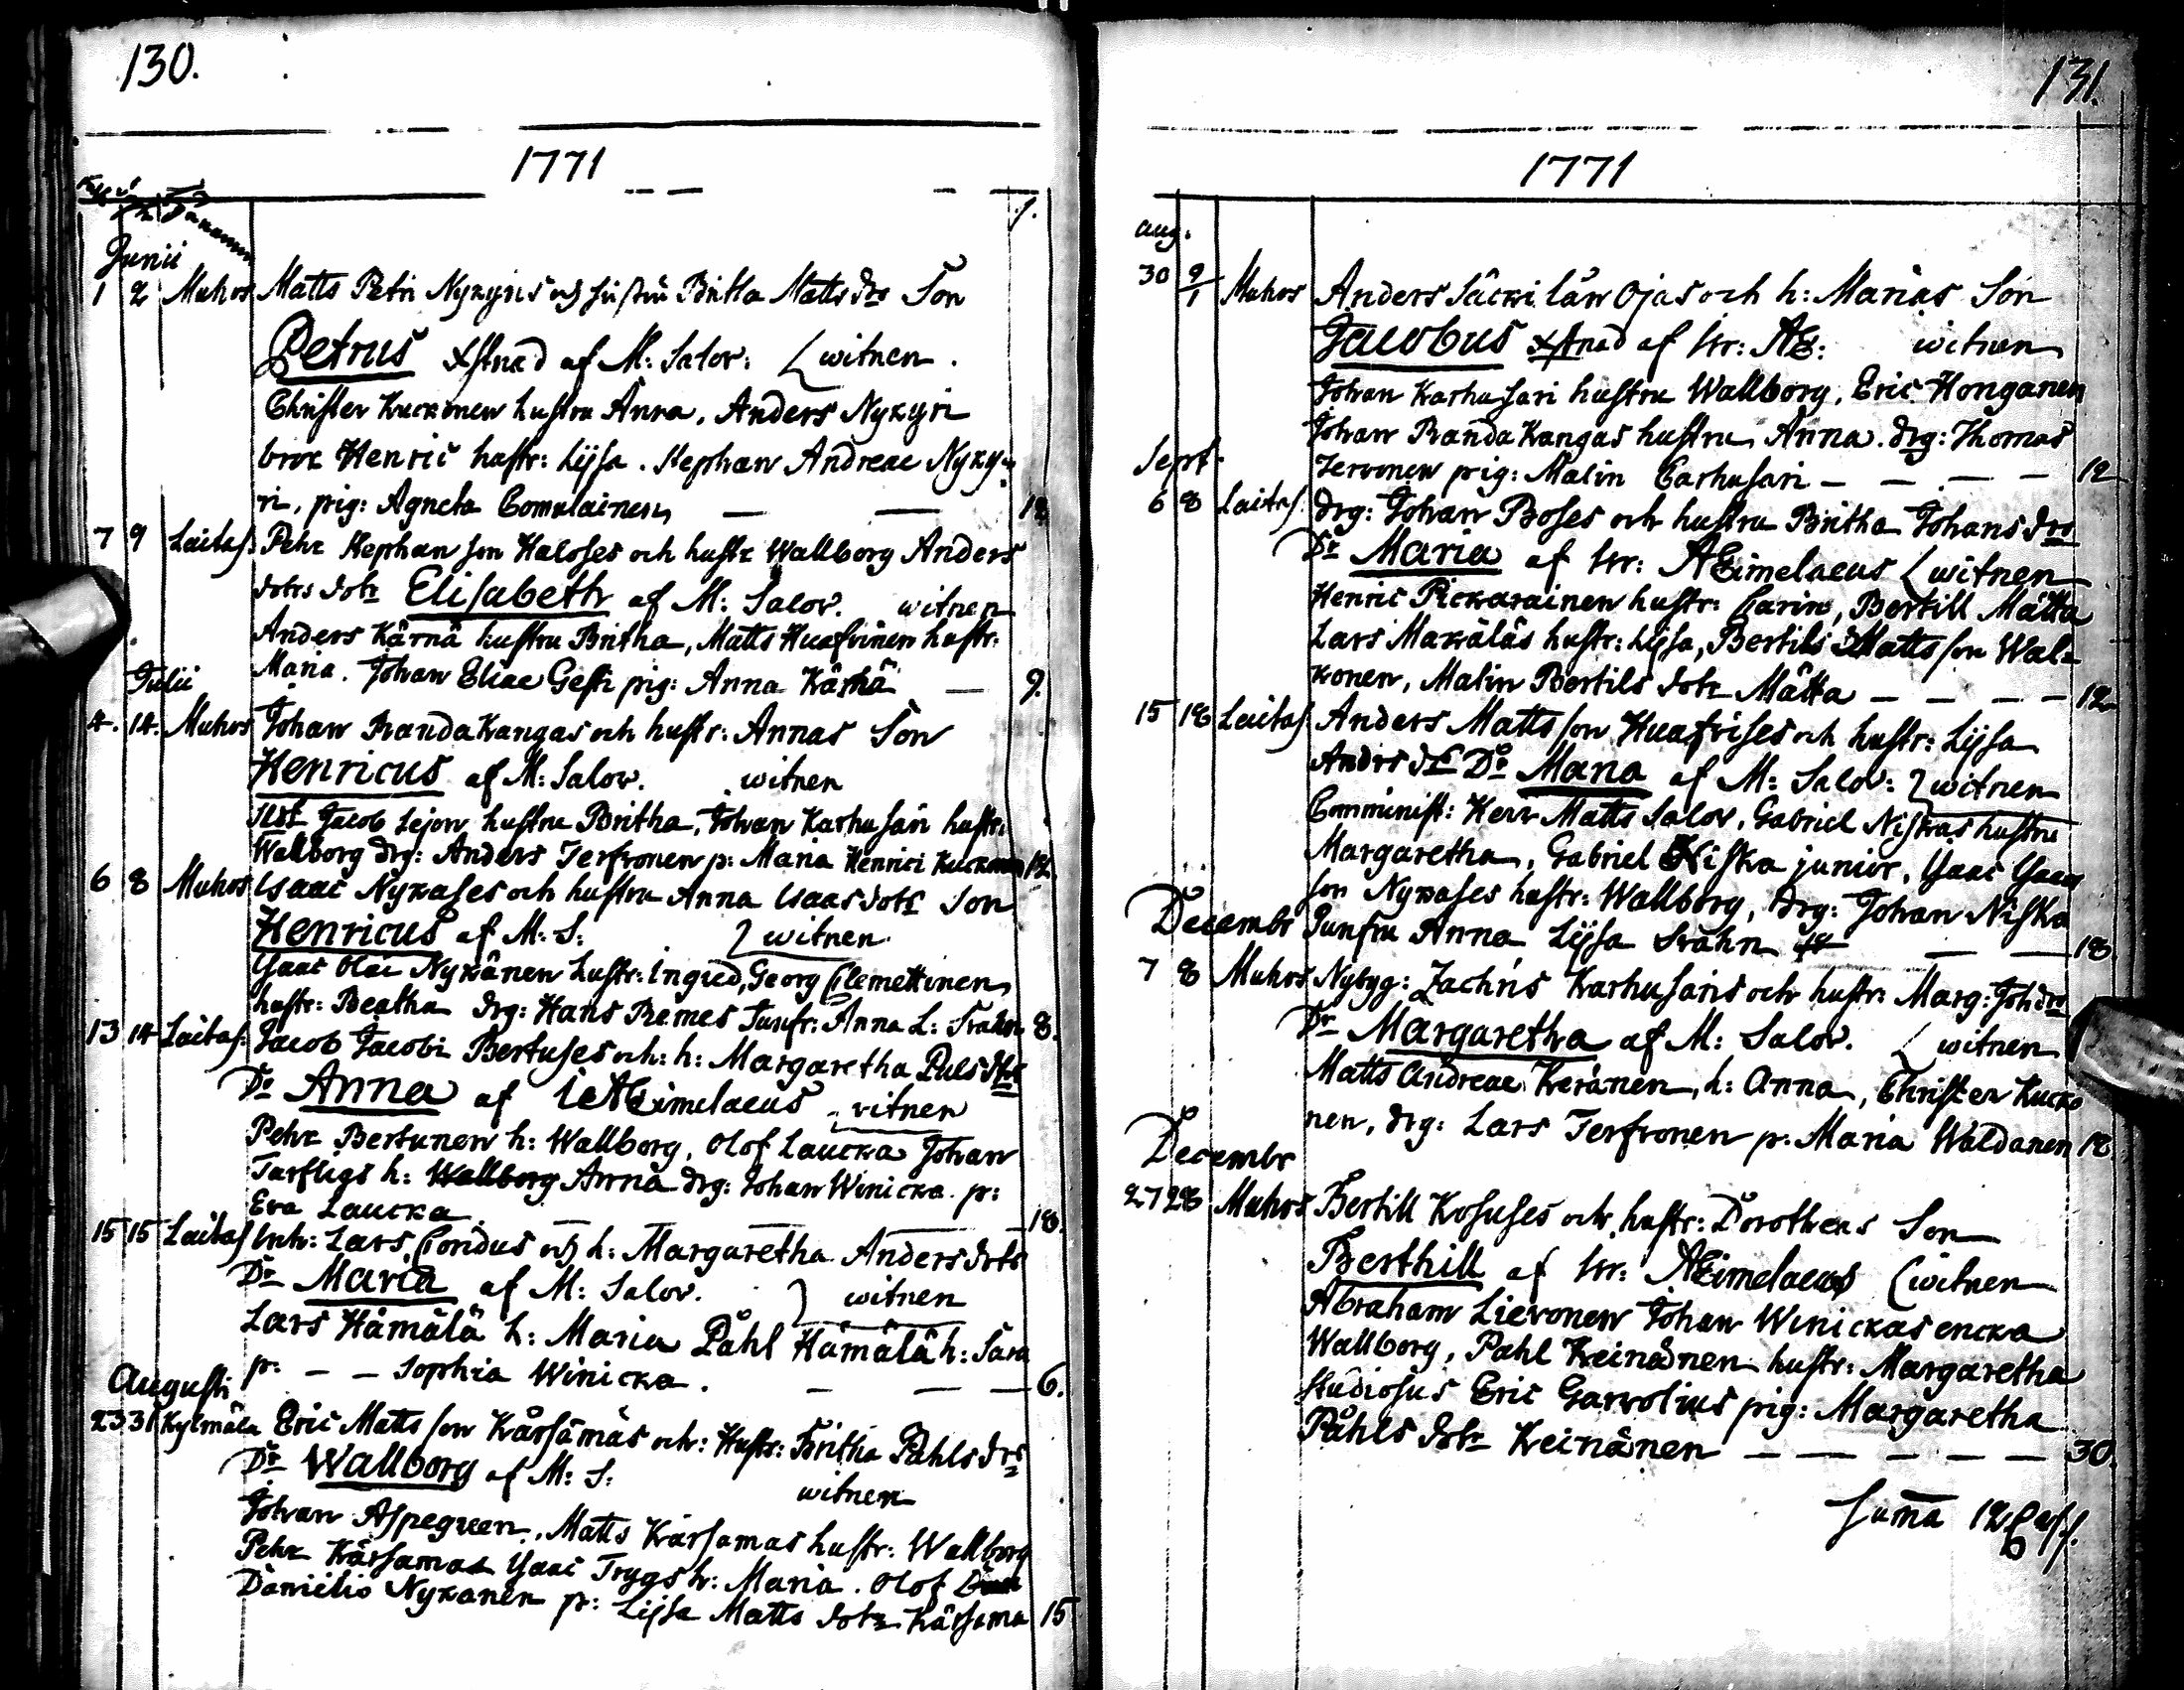 130.
1771
Junii
1 2 Muhos Matts Petri Nykyris och hustru Britha Matts drs Son
Petrus xstnad af M: Salov: witnen.
Christer Kuckonen hustru Anna, Anders Nykyri
bror Henric hustr: Lijsa. Stephan Andreae Nyky-
ri, pig: Agneta Comulainen — — 12
7 9 Laitas. Pehr Stephan son Haloses och hustr Wallborg Anders
dotrs dotr Elisabeth af M: Salov. witnen
Anders Kärnä hustru Britha, Matts Huafvinen hustr:
Maria. Johan Eliae Gesti pig: Anna Kärnä — 9.
Julii
4. 14. Muhos Johan RandaKangas och hustr: Annas Son
Henricus af M: Salov. witnen
Jacob Lejon hustru Britha, Johan Karhusari hustr:
Wallborg drg: Anders Terfvonen p: Maria Henrici Kuckonen 12.
6 8 Muhos Isaac Nykases och hustru Anna Isaas dotr Son
Henricus af M: S: witnen
Isaac Olai Nykänen hustr: Ingred, Georg Clemettinen
hustr: Beatha drg: Hans Remes Junfr: Anna L: Frahn 8.
13 14 Laitas: Jacob Jacobi Bertuses och: h: Margaretha Puls dotr
Dr Anna af AEimelaeus vitnen
Pehr Bertunen h: Wallborg, Olof Laucka Johan
Tarfligs h: Wallborg Anna drg: Johan Winicka. p:
Eva Laucka — — — 18.
15 15 Laitas Inh: Lars Coridus och h: Margaretha Anders dotr
Dr Maria af M: Salov. witnen
Lars Hämälä h: Maria Påhl Hämälä h: Sara
p: — — Sophia Winicka. — — — 6.
Augusti
23 31 Kylmäla Eric Matts son Kärsämäs och: Hustr: Britha Påhls drs
Dr Wallborg af M: S: witnen
Johan Aspegreen, Matts Kärsamas hustr: Wallborg
Pehr Kärsamas Isaac Trygs h: Maria. Olof
Danielis Nykanen p: Lijsa Matts dotr Kärsama 15
131.
1771
aug.
30 9/1 Muhos Anders Säckilän Ojas och h: Marias Son
Jacobus xstnad af Hr: AE: witnen
Johan Karhusari hustru Wallborg, Eric Honganen
Johan RandaKangas hustru Anna. drg: Thomas
Sept.
Tervonen pig: Malin Carhusari — — — — 12
6 8 Laitas. drg: Johan Boses och hustru Britha Johans drs
Dr Maria af Hr: AEimelaeus witnen
Henric Pickarainen hustr: Carin, Bertill Mätta
Lars Makäläs hustr: Lijsa, Bertils Matts son Wal-
konen, Malin Bertils dotr Mätta — — — — 12
15 18 Laitas. Anders Matts son Huafvises och hustr: Lijsa
Andrs dr Dr Maria af M: Salov: witnen
Comminist: Herr Matts Salov, Gabriel Niskas hustru
Margaretha, Gabriel Niska junior, Isaac Isaac
son Nykases hustr: Wallborg, drg: Johan Niska
Decembr Junfru Anna Lijsa Frahn — — 18
7 8 Muhos Nybyg: Zachris Karhusaris och hustr: Marg: Joh drs
Dr Margaretha af M: Salov. witnen
Matts Andreae Keränen, h: Anna, Christer Kucko
nen, drg: Lars Terfvonen p: Maria Waldanen 12
Decembr
27 28 Muhos Bertill Kosuses och hustr: Dorotheas Son
Berthill af Hr: AEimelaeus witnen
Abraham Lievonen Johan Winickas encka
Wallborg, Pahl Keinänen hustr: Margaretha
Studiosus Eric Garvolius pig: Margaretha
Påhls dotr Keinänen — — — — — 30.
Suma 12